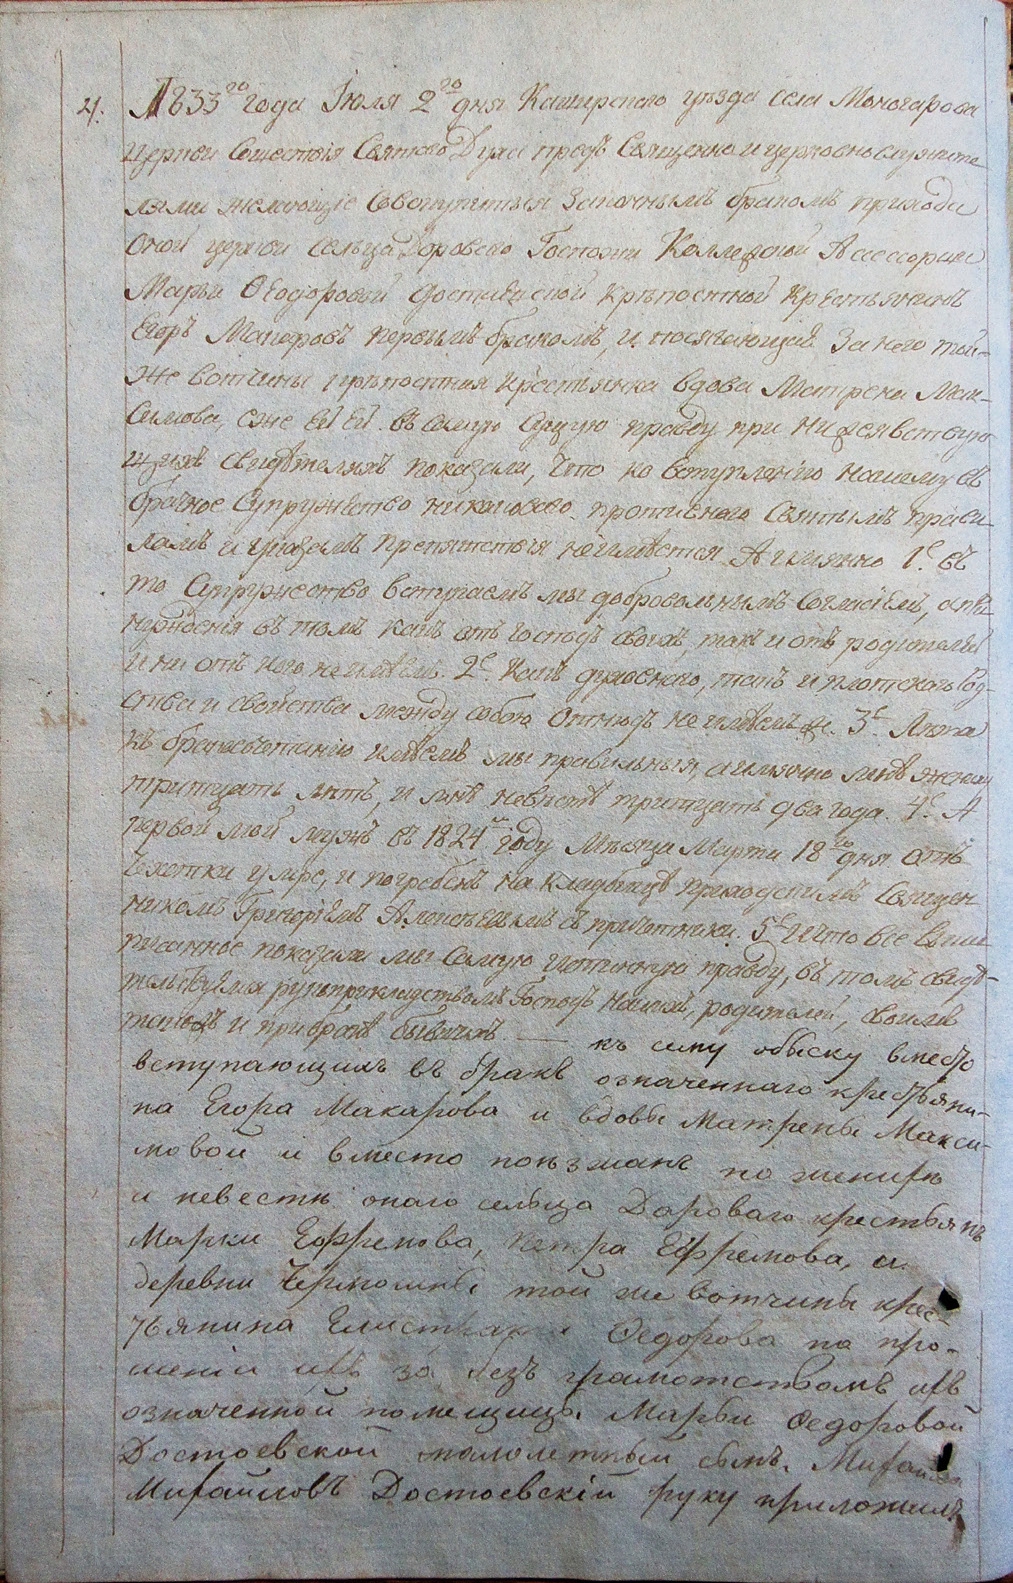 4.
1833го года Июля 2го дня Каширскаго уѣзда села Моногарова
Церкви Сошествія Святаго Духа предъ Священно и церковнослужите-
лями желающіе совокупитныя законнымъ бракомъ прихода
оной церкви сельца Дароваго Госпожи Коллежской Ассессорши
Марьи Ѳеодоровой Достаевской крѣпостной крестьянинъ
Егоръ Макаровъ первымъ бракомъ, и посягающая за него той-
же вотчины крѣпостная крестьянка вдова Матрена Мак-
симова, еже ей ей въ самую сущую правду при нижеявствую-
щихъ свидѣтеляхъ показали, что ко вступленію нашему въ
брачное супружество никаковаго противнаго Святымъ прави-
ламъ и указамъ препятствія не имѣется А имянно 1е въ
то супружество вступаемъ мы добровольнымъ согласіемъ, а при-
нужденія въ томъ какъ отъ господъ своихъ, такъ и отъ родителей
и ни отъ кого не имѣемъ. 2е Какъ духовнаго, такъ и плотскаго род-
ства и свойства между собою отнюдь не имѣемъ же. 3е Лѣта
къ бракосочетанію имѣемъ мы правильныя, а имянно мнѣ жениху
тритцать лѣтъ, и мнѣ невѣстѣ тритцать два года. 4е А
первой мой мужъ въ 1824м году Мѣсяца Марта 18го дня отъ
чехотки умре, и погребенъ на кладбищѣ приходскимъ Священ
никомъ Григоріемъ Алексѣевымъ съ причетники. 5е И что все выше
писанное показали мы самую истинную правду, въ томъ свидѣ-
тельствуемъ рукоприкладствомъ Господъ нашихъ, родителей, своимъ
и при бракѣ бывшихъ — къ сему обыску вместо
вступающихъ въ бракъ означеннаго крестьяни-
на Егора Макарова и вдовы Матрены Макси-
мовой и вместо поезжанъ по женихѣ
и невестѣ онаго сельца Дароваго крестьянъ
Марки Ефремова, Петра Ефремова, и
деревни Чермошны той же вотчины крес-
тьянина Елистрата Ѳедорова по про-
шенію ихъ за безъ грамотствомъ ихъ
означенной помещицы Марьи Ѳедоровой
Достоевской малолетный сынъ Михаилъ
Михаиловъ Достоевскій руку приложилъ